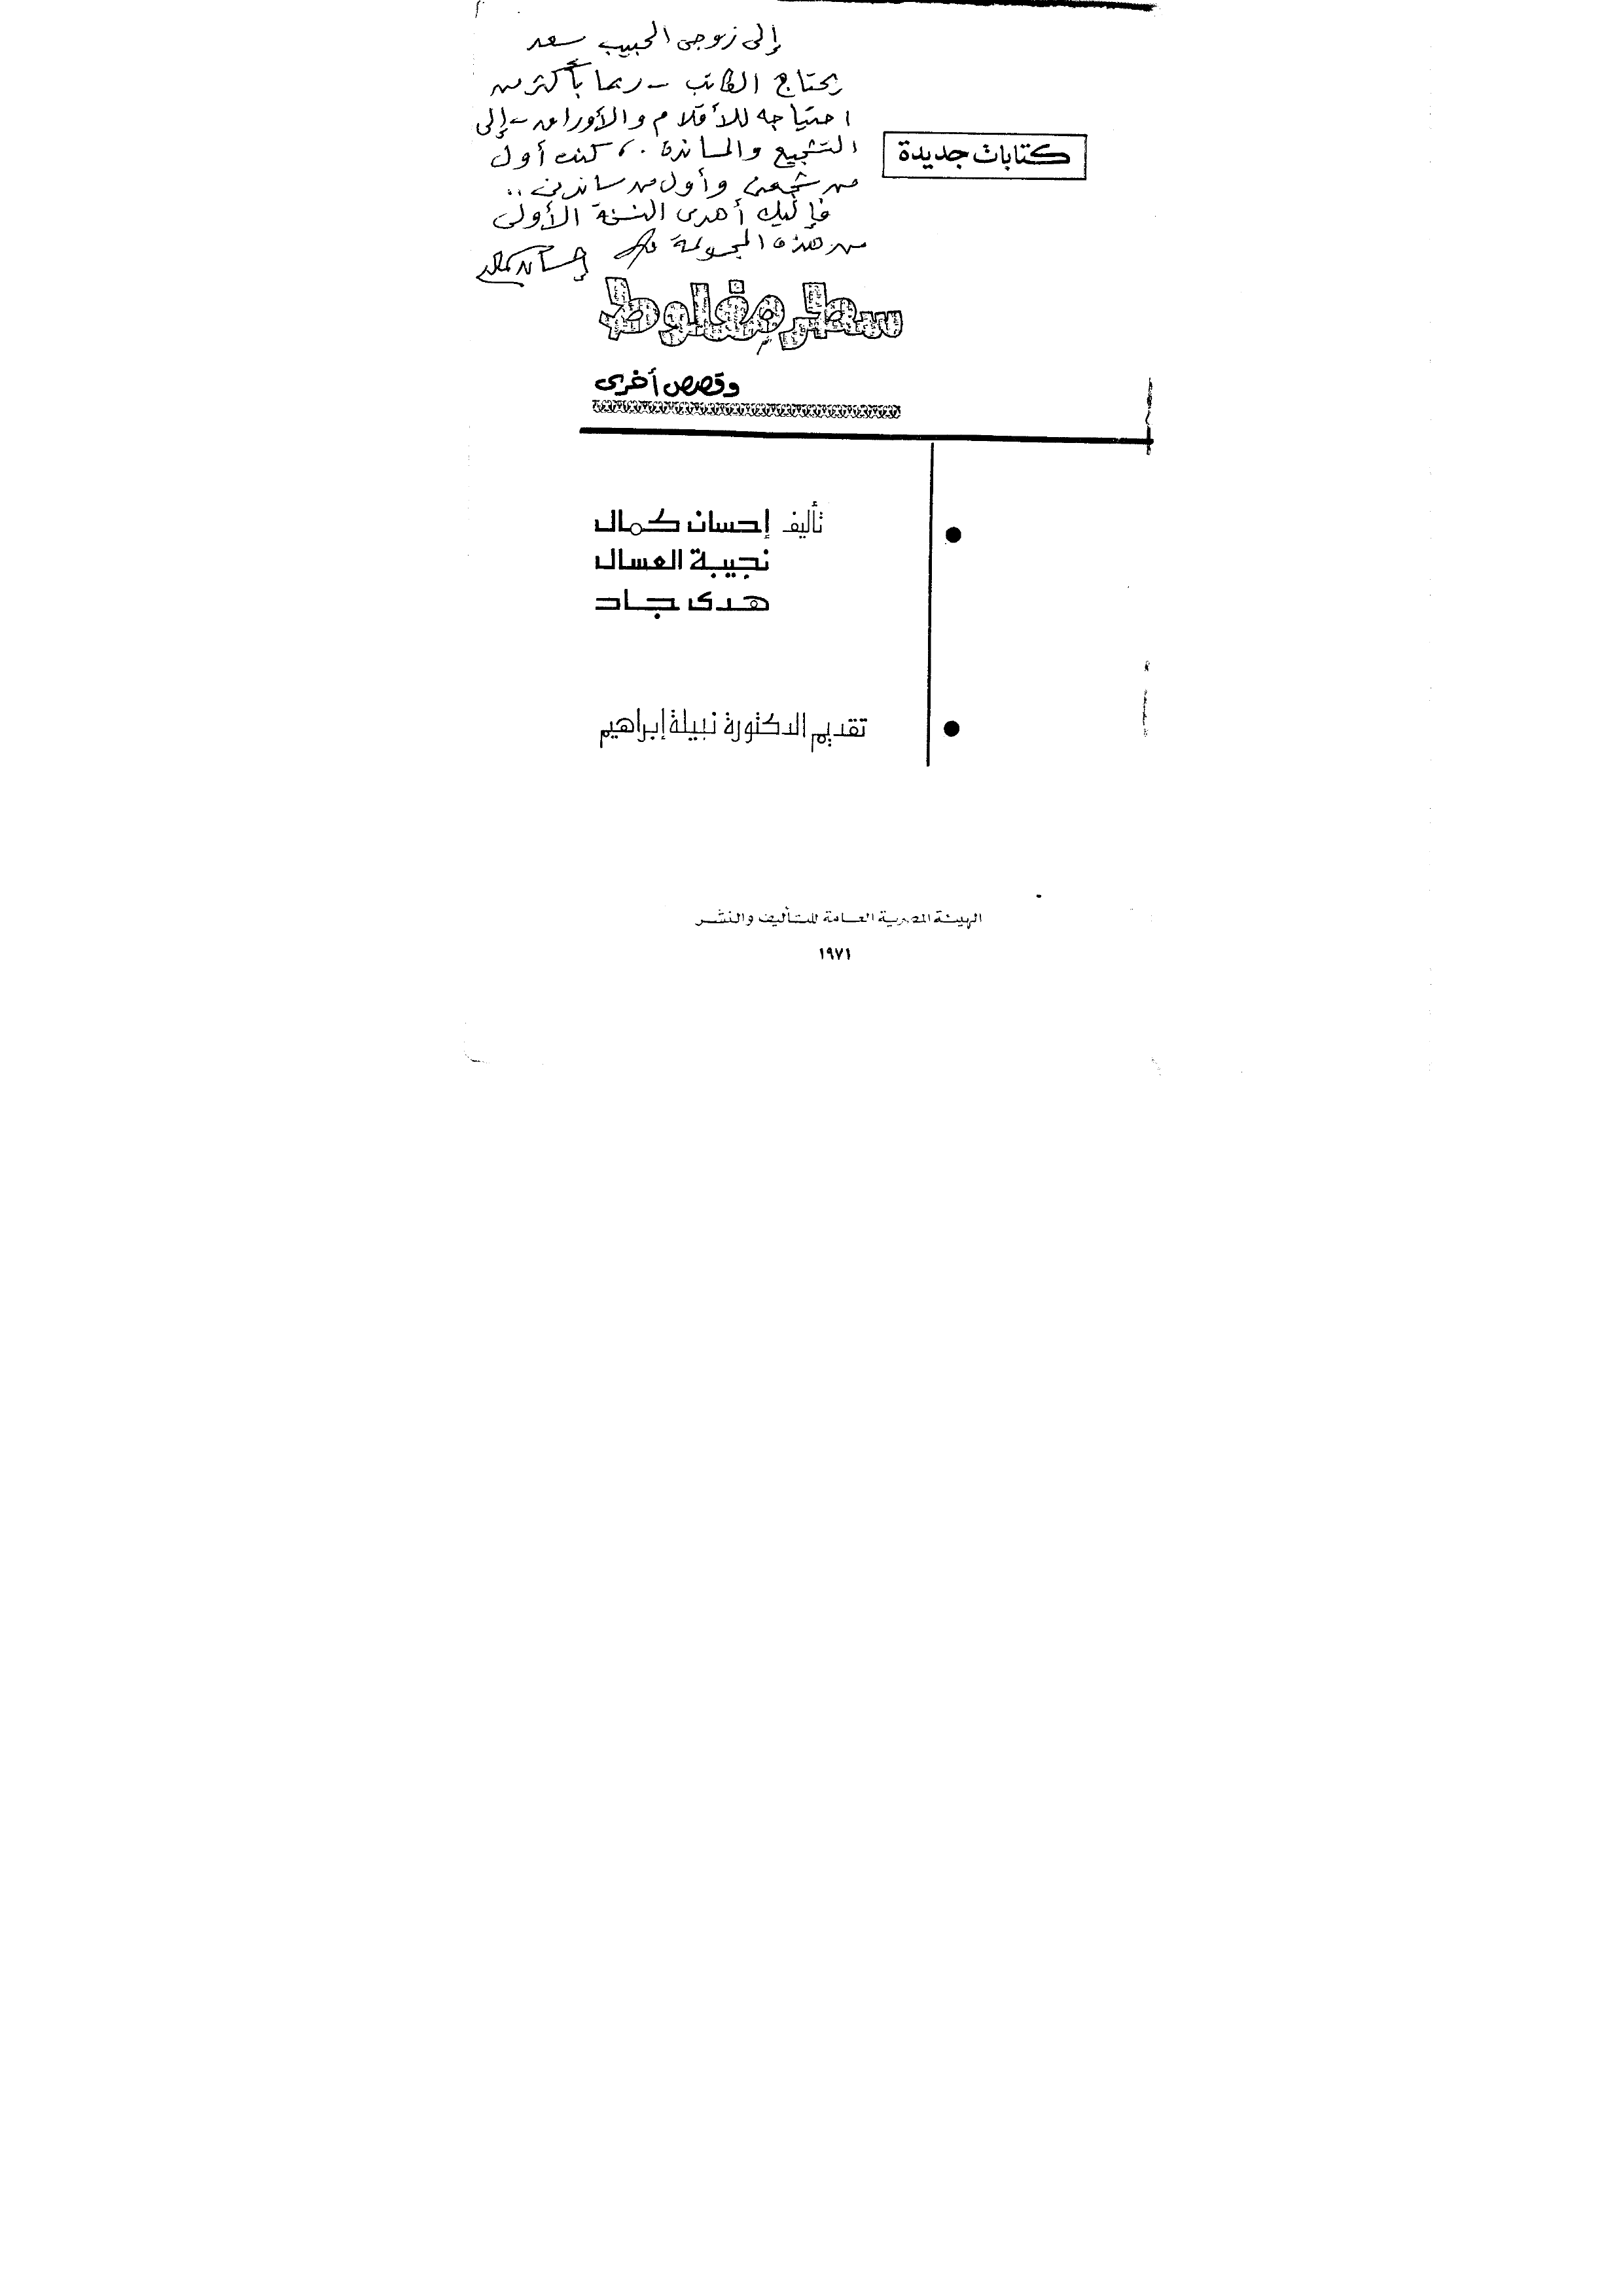 إلى زوجى الحبيب سعد
يحتاج الكاتب - ربما بأكثر من
احتياجه للأقلام والأوراق - إلى
التشجيع والمساندة .، كنت أول
من شجعنى وأول من ساندنى ..
فإليك أهدى النسخة الأولى
من هذه المجموعة
إحسان كمال
كتابات جديدة
سطر مغلوط
وقصص أخرى
تأليف إحسان كمال
نجيبة العسال
هدى جاد
تقديم الدكتورة نبيلة إبراهيم
الهيئة المصرية العامة للتأليف والنشر
١٩٧١